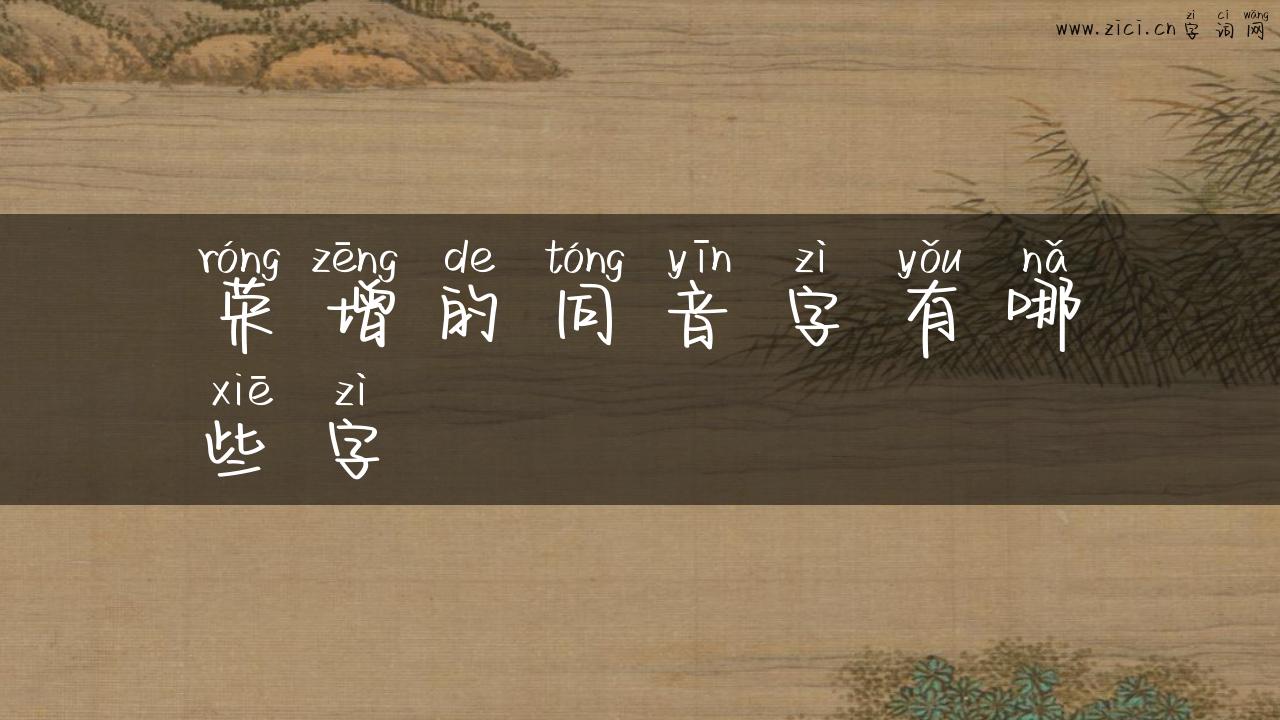 zì cí wǎng
www.zici.cn 字 词 网
róng zēng de tóng yīn zì yǒu nǎ
荣 增 的 同 音 字 有 哪
xiē zì
些 字